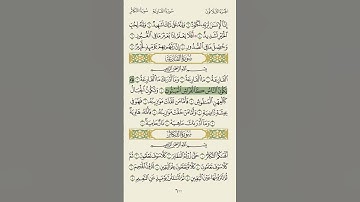 الجزء الثلاثون سورة القارعة سورة التكاثر
إِنَّ الْإِنسَانَ لِرَبِّهِ لَكَنُودٌ ٦ وَإِنَّهُ عَلَىٰ ذَٰلِكَ لَشَهِيدٌ ٧ وَإِنَّهُ لِحُبِّ
الْخَيْرِ لَشَدِيدٌ ٨ ۞ أَفَلَا يَعْلَمُ إِذَا بُعْثِرَ مَا فِي الْقُبُورِ ٩
وَحُصِّلَ مَا فِي الصُّدُورِ ١٠ إِنَّ رَبَّهُم بِهِمْ يَوْمَئِذٍ لَّخَبِيرٌ ١١
سُورَةُ الْقَارِعَةِ
بِسْمِ اللَّهِ الرَّحْمَٰنِ الرَّحِيمِ
الْقَارِعَةُ ١ مَا الْقَارِعَةُ ٢ وَمَا أَدْرَاكَ مَا الْقَارِعَةُ ٣ يَوْمَ
يَكُونُ النَّاسُ كَالْفَرَاشِ الْمَبْثُوثِ ٤ وَتَكُونُ الْجِبَالُ
كَالْعِهْنِ الْمَنفُوشِ ٥ فَأَمَّا مَن ثَقُلَتْ مَوَازِينُهُ ٦ فَهُوَ فِي
عِيشَةٍ رَّاضِيَةٍ ٧ وَأَمَّا مَنْ خَفَّتْ مَوَازِينُهُ ٨ فَأُمُّهُ هَاوِيَةٌ
٩ وَمَا أَدْرَاكَ مَا هِيَهْ ١٠ نَارٌ حَامِيَةٌ ١١
سُورَةُ التَّكَاثُرِ
بِسْمِ اللَّهِ الرَّحْمَٰنِ الرَّحِيمِ
أَلْهَاكُمُ التَّكَاثُرُ ١ حَتَّىٰ زُرْتُمُ الْمَقَابِرَ ٢ كَلَّا سَوْفَ تَعْلَمُونَ ٣
ثُمَّ كَلَّا سَوْفَ تَعْلَمُونَ ٤ كَلَّا لَوْ تَعْلَمُونَ عِلْمَ الْيَقِينِ ٥ لَتَرَوُنَّ الْجَحِيمَ ٦
ثُمَّ لَتَرَوُنَّهَا عَيْنَ الْيَقِينِ ٧ ثُمَّ لَتُسْأَلُنَّ يَوْمَئِذٍ عَنِ النَّعِيمِ ٨
٦٠٠